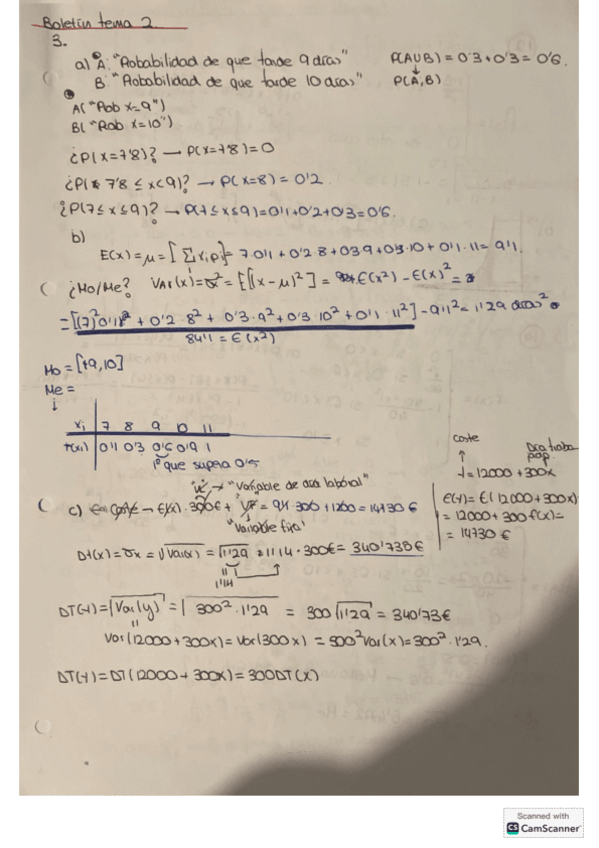 Boletín tema 2.
3.
a) A: "Probabilidad de que tarde 9 días" P(AUB) = 0'3 + 0'3 = 0'6.
B: "Probabilidad de que tarde 10 días" P(A,B)
A("Prob x=9")
B("Prob x=10")
¿P(x=7'8)? → P(x=7'8)=0
¿P( 7'8 ≤ x<9)? → P(x=8) = 0'2
¿P(7≤ x ≤9)? → P(7≤x≤9)=0'1+0'2+0'3=0'6.
b)
E(x)=μ=[Σxi pi]= 7·0'1 + 0'2·8 + 0'3·9 + 0'3·10 + 0'1·11 = 9'1.
¿Mo/Me? Var(x)=σ²=E[(x-μ)²] = E(x²) - E(x)² =
=[(7)²0'1 + 0'2·8² + 0'3·9² + 0'3·10² + 0'1·11²] - 9'1² = 1'29 días².
84'1 = E(x²)
Mo = [9,10]
Me =
↓
xi 7 8 9 10 11
F(xi) 0'1 0'3 0'6 0'9 1
1º que supera 0'5
"Variable de día laboral"
coste
Día trabajo
Y=12000+300x
c) Coste → E(x)·300€ + VF = 9'1·300+1200=14730€
"Variable fija"
E(Y)=E(12000+300x)
=12000+300E(x)=
= 14730€
Dt(x)=σx=√Var(x)=√1'29=1'14·300€=340'738€
DT(Y)=√Var(y)=√300²·1'29 = 300√1'29=340'73€
Var(12000+300x)=Var(300x)=300²Var(x)=300²·1'29.
DT(Y)=DT(12000+300x)=300DT(x)
Scanned with
CS CamScanner